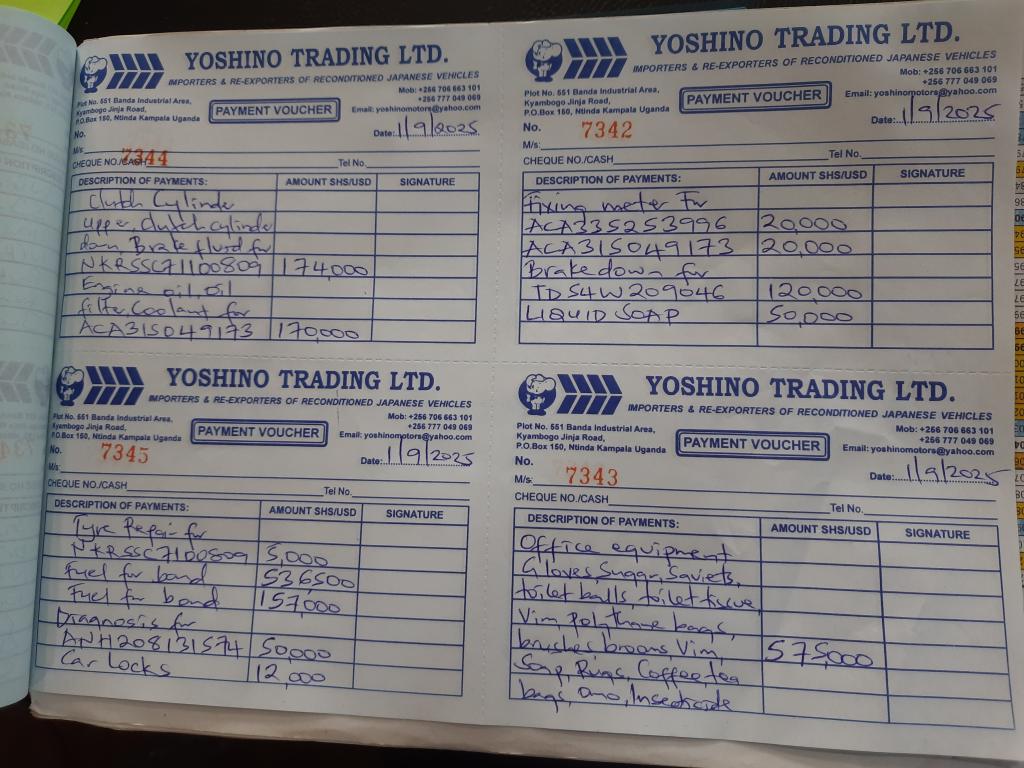 YOSHINO TRADING LTD.
IMPORTERS & RE-EXPORTERS OF RECONDITIONED JAPANESE VEHICLES
Plot No. 551 Banda Industrial Area,
Kyambogo Jinja Road,
P.O.Box 150, Ntinda Kampala Uganda
PAYMENT VOUCHER
Mob: +256 706 663 101
+256 777 049 069
Email: yoshinomotors@yahoo.com
Date: 1/9/2025
No.
M/s:
7344
CHEQUE NO./CASH Tel No.
DESCRIPTION OF PAYMENTS: AMOUNT SHS/USD SIGNATURE
Clutch Cylinder
upper, clutch cylinder
down Brake fluid for
NKRSSC71100809 174,000
Engine oil, oil
filter, Coolant for
ACA315049173 170,000
YOSHINO TRADING LTD.
IMPORTERS & RE-EXPORTERS OF RECONDITIONED JAPANESE VEHICLES
Plot No. 551 Banda Industrial Area,
Kyambogo Jinja Road,
P.O.Box 150, Ntinda Kampala Uganda
PAYMENT VOUCHER
Mob: +256 706 663 101
+256 777 049 069
Email: yoshinomotors@yahoo.com
Date: 1/9/2025
No. 7342
M/s:
CHEQUE NO./CASH Tel No.
DESCRIPTION OF PAYMENTS: AMOUNT SHS/USD SIGNATURE
Fixing meter for
ACA335253996 20,000
ACA315049173 20,000
Brakedown for
TDS4W209046 120,000
LIQUID SOAP 50,000
YOSHINO TRADING LTD.
IMPORTERS & RE-EXPORTERS OF RECONDITIONED JAPANESE VEHICLES
Plot No. 551 Banda Industrial Area,
Kyambogo Jinja Road,
P.O.Box 150, Ntinda Kampala Uganda
PAYMENT VOUCHER
Mob: +256 706 663 101
+256 777 049 069
Email: yoshinomotors@yahoo.com
Date: 1/9/2025
No. 7345
M/s:
CHEQUE NO./CASH Tel No.
DESCRIPTION OF PAYMENTS: AMOUNT SHS/USD SIGNATURE
Tyre Repair for
NKRSSC7100809 5,000
Fuel for bond 536500
Fuel for bond 157,000
Diagnosis for
ANH208131574 50,000
Car Locks 12,000
YOSHINO TRADING LTD.
IMPORTERS & RE-EXPORTERS OF RECONDITIONED JAPANESE VEHICLES
Plot No. 551 Banda Industrial Area,
Kyambogo Jinja Road,
P.O.Box 150, Ntinda Kampala Uganda
PAYMENT VOUCHER
Mob: +256 706 663 101
+256 777 049 069
Email: yoshinomotors@yahoo.com
Date: 1/9/2025
No.
M/s: 7343
CHEQUE NO./CASH Tel No.
DESCRIPTION OF PAYMENTS: AMOUNT SHS/USD SIGNATURE
Office equipment
Gloves, Sugar,
toilet balls, toilet tissue,
Vim, bags,
brushes, brooms, Vim, 575000
Soap, Rugs, Coffee, tea
bags, Omo, Insecticide